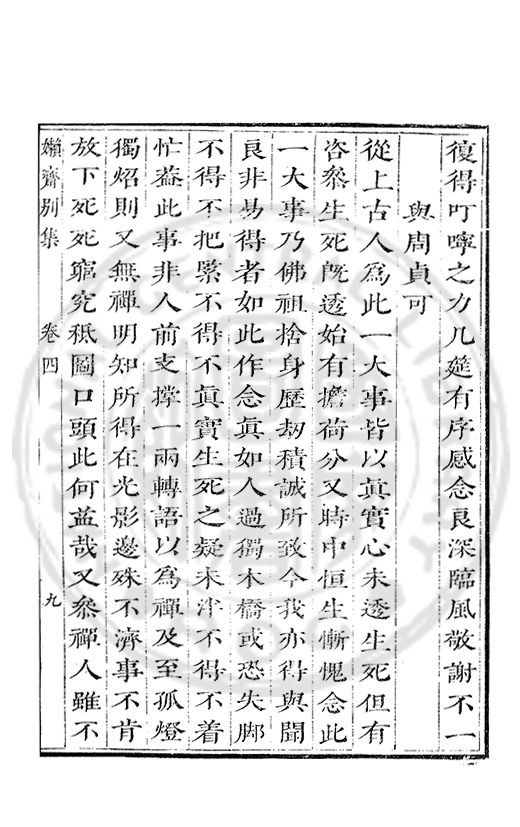 復得叮嚀之力几筵有序感念良深臨風敬謝不一
與周貞可
從上古人爲此一大事皆以眞實心未透生死但有
咨叅生死旣透始有擔荷分又時中恒生慚愧念此
一大事乃佛祖捨身歷劫積誠所致今我亦得與聞
良非易得者如此作念眞如人過獨木橋或恐失脚
不得不把緊不得不眞實生死之疑未泮不得不着
忙葢此事非人前支撐一兩轉語以爲禪及至孤燈
獨炤則又無禪明知所得在光影邊殊不濟事不肯
放下死死窮究秪圖口頭此何益哉又叅禪人雖不
嬾齋别集
卷四
九